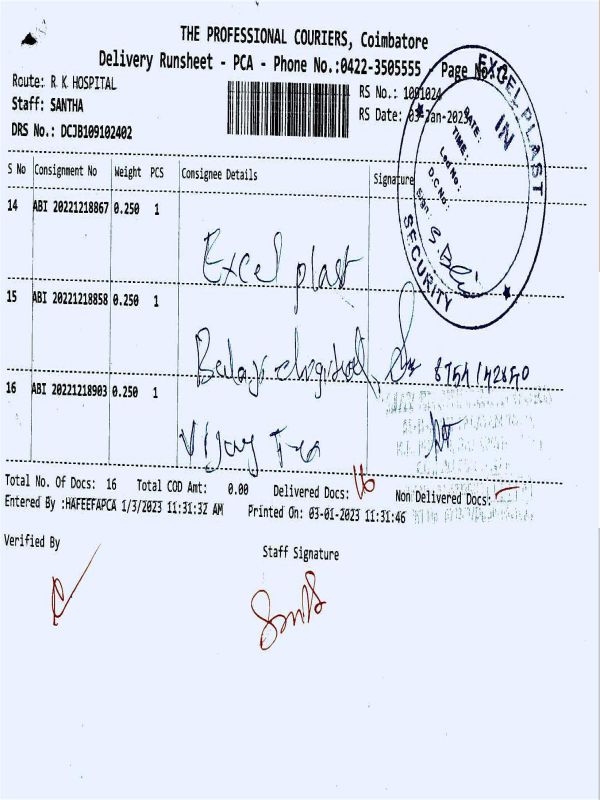 THE PROFESSIONAL COURIERS, Coimbatore
Delivery Runsheet - PCA - Phone No.:0422-3505555 - Page No
Route: R K HOSPITAL
RS No.: 1091024
Staff: SANTHA
RS Date: 03-Jan-2023
DRS No.: DCJB109102402
EXCEL PLAST
IN
DATE:
TIME:
D.C No.:
Sign:
SECURITY
S No Consignment No Weight PCS Consignee Details Signature
14 ABI 20221218867 0.250 1
Excel plast
15 ABI 20221218858 0.250 1
Balaji digital
16 ABI 20221218903 0.250 1
Vijay
Total No. Of Docs: 16 Total COD Amt: 0.00 Delivered Docs: 16 Non Delivered Docs: -
Entered By :HAFEEFAPCA 1/3/2023 11:31:32 AM Printed On: 03-01-2023 11:31:46
Verified By
Staff Signature